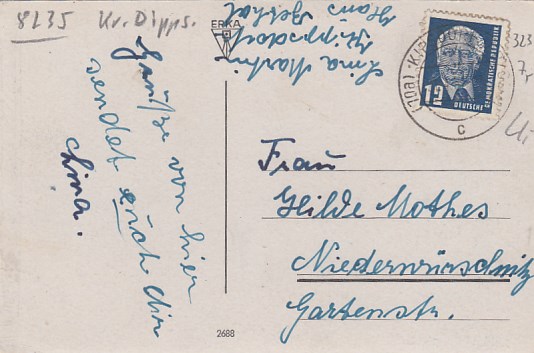 8235 Kr. Dipps.
Grüße von hier
sendet euch Die
Lina.
ERKA
Lina Martin
Kipsdorf
Haus
(10a) KIPSDORF
c
12
DEUTSCHE
DEMOKRATISCHE REPUBLIK
323
Frau
Hilde Mothes
Niederwürschnitz
Gartenstr.
2688